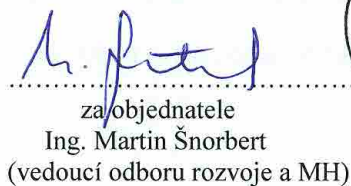 za objednatele
Ing. Martin Šnorbert
(vedoucí odboru rozvoje a MH)